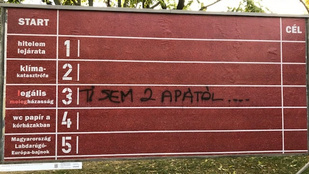 START
CÉL
hitelem
lejárata
1
klíma-
katasztrófa
2
legális
melegházasság
3
TI SEM 2 APÁTÓL....
wc papír a
kórházakban
4
Magyarország
Labdarúgó-
Európa-bajnok
5